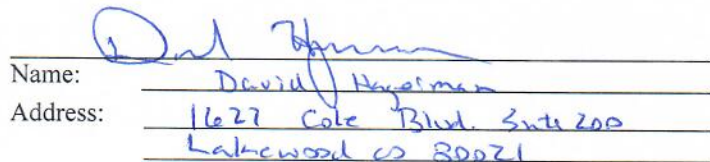 Name: David Hagerman
Address: 1627 Cole Blvd. Suite 200
Lakewood CO 80021